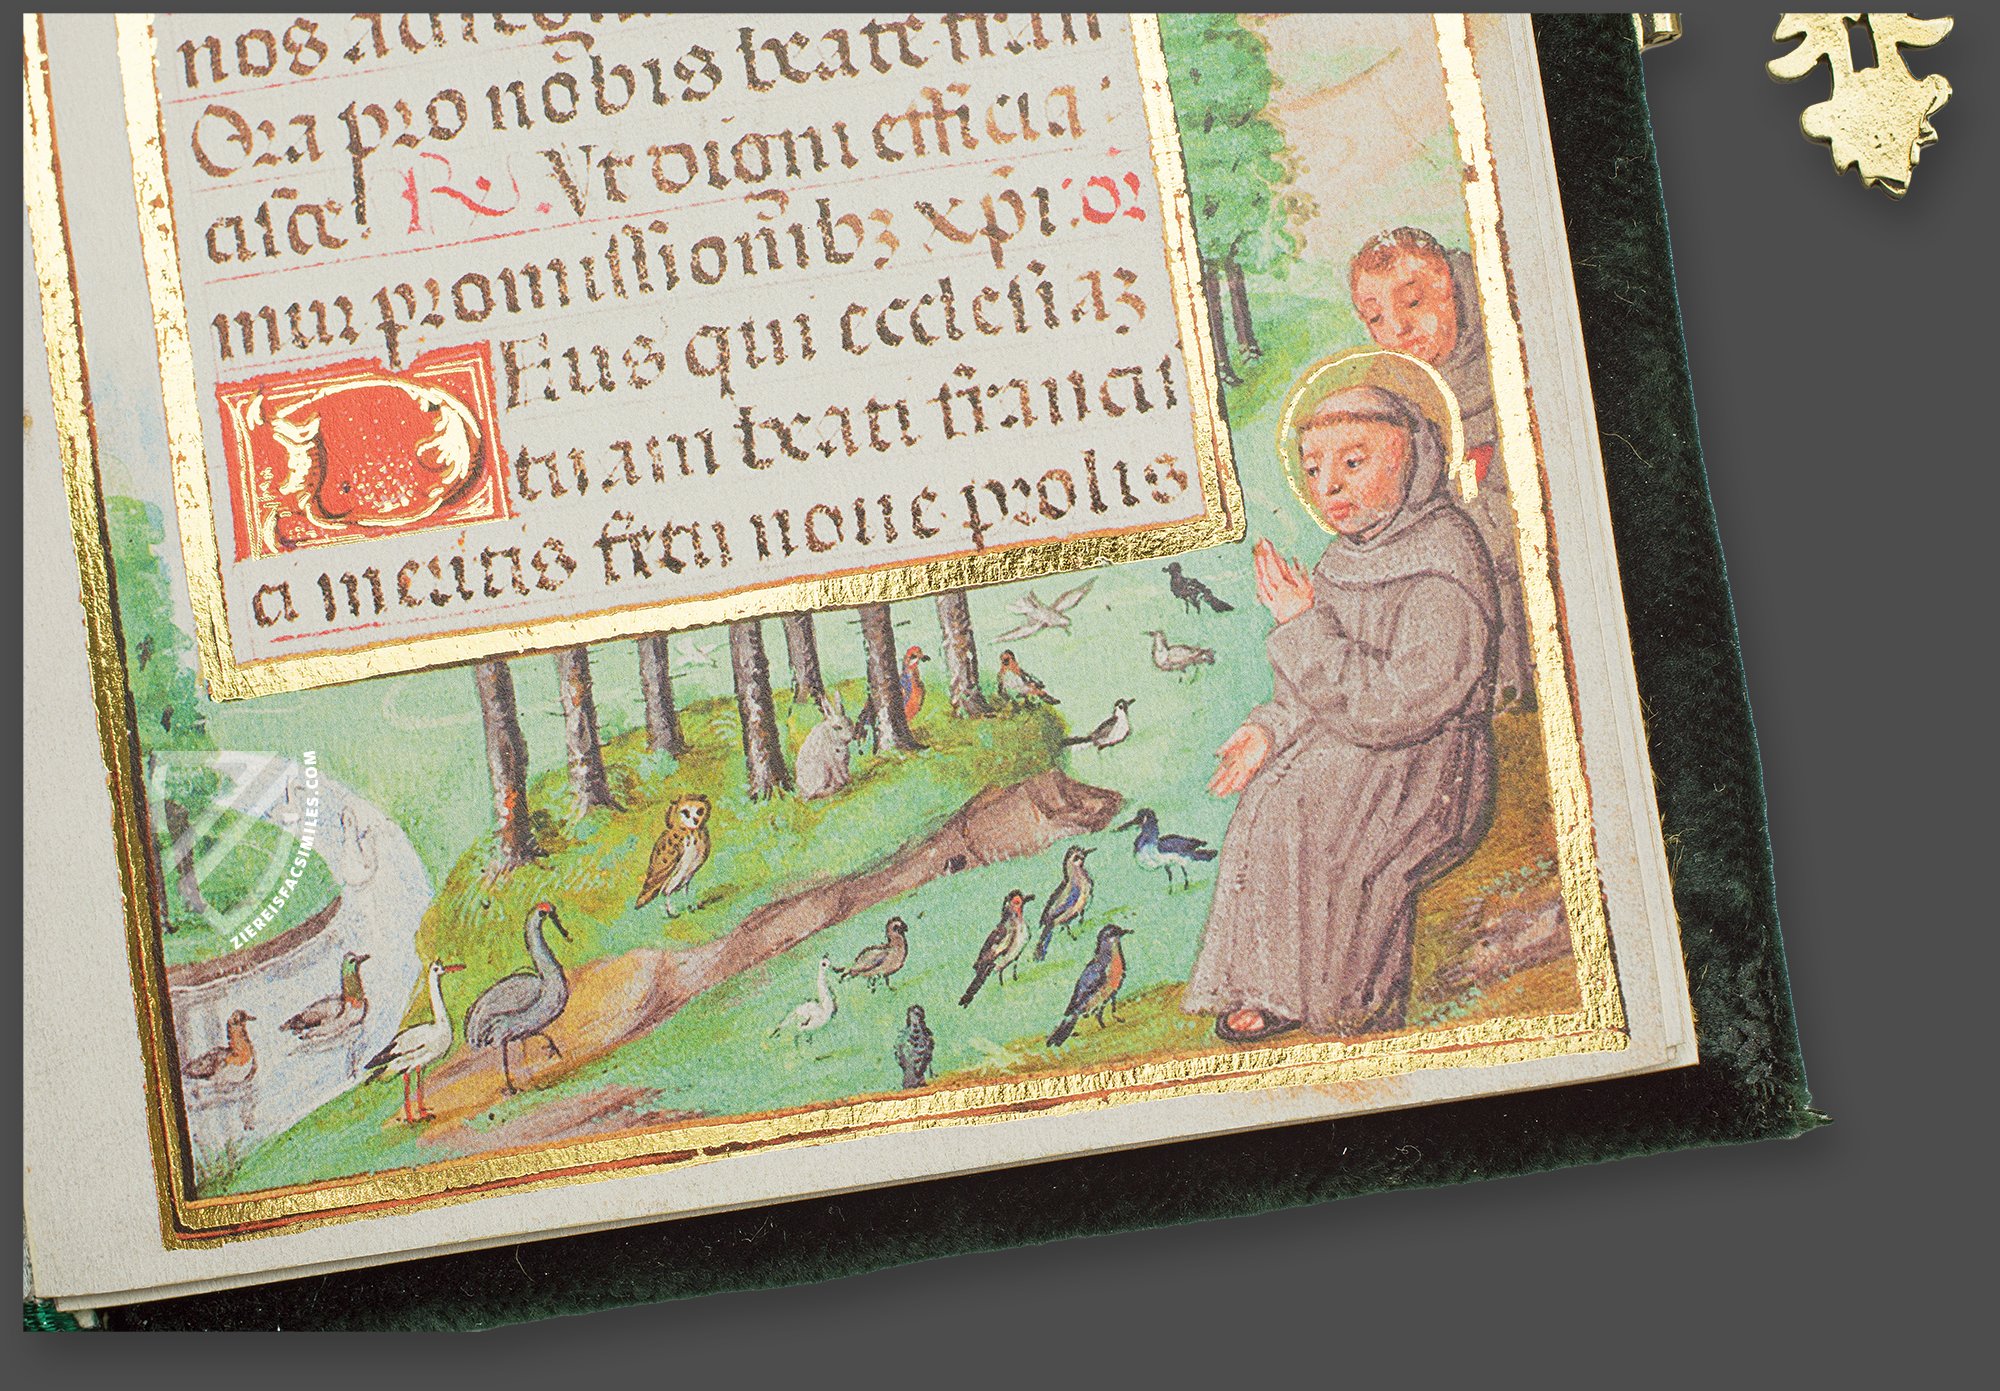 nos
Ora pro nobis beate fran
cisce R. Ut digni efficia
mur promissionibꝫ xpi: Or
Deus qui ecclesiaꝫ
tuam beati francis
ci meritis fetu noue prolis
ZIEREISFACSIMILES.COM